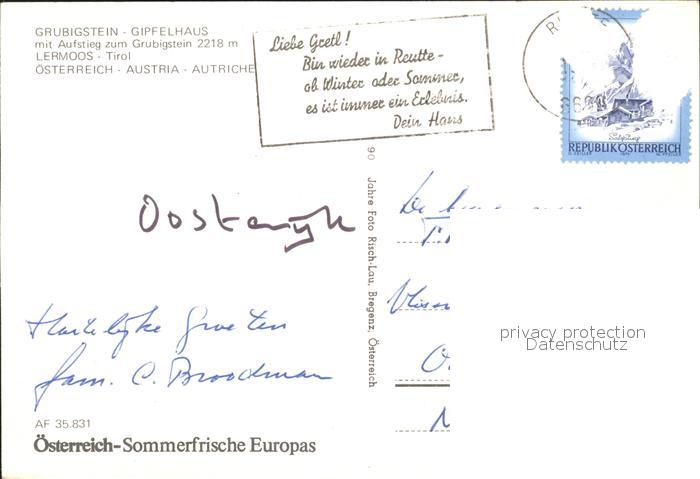 GRUBIGSTEIN - GIPFELHAUS
mit Aufstieg zum Grubigstein 2218 m
LERMOOS - Tirol
ÖSTERREICH - AUSTRIA - AUTRICHE
Liebe Gretl!
Bin wieder in Reutte -
ob Winter oder Sommer,
es ist immer ein Erlebnis.
Dein Hans
REPUBLIK ÖSTERREICH
90 Jahre Foto Risch-Lau, Bregenz, Österreich
Oostenryk
Hartelijke Groeten
fam. C. Broodman
privacy protection
Datenschutz
AF 35.831
Österreich-Sommerfrische Europas